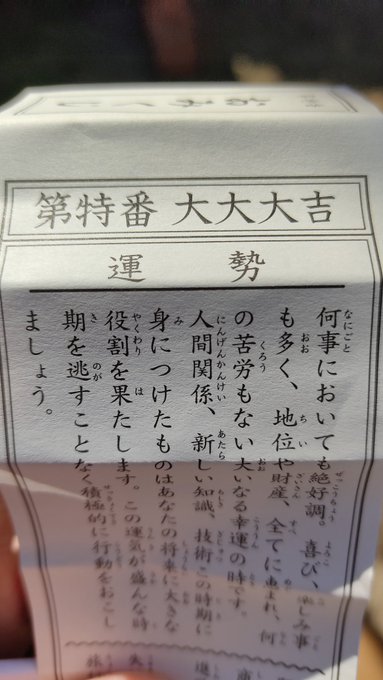 おみくじ
第特番 大大大吉
運勢
何事においても絶好調。喜び、楽しみ事
も多く、地位や財産、全てに恵まれ、何
の苦労もない大いなる幸運の時です。
人間関係、新しい知識、技術この時期に
身につけたものはあなたの将来に大きな
役割を果たします。この運気が盛んな時
期を逃すことなく積極的に行動をおこし
ましょう。